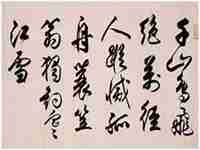 千山鳥飛
絕萬徑
人蹤滅孤
舟蓑笠
翁獨釣寒
江雪